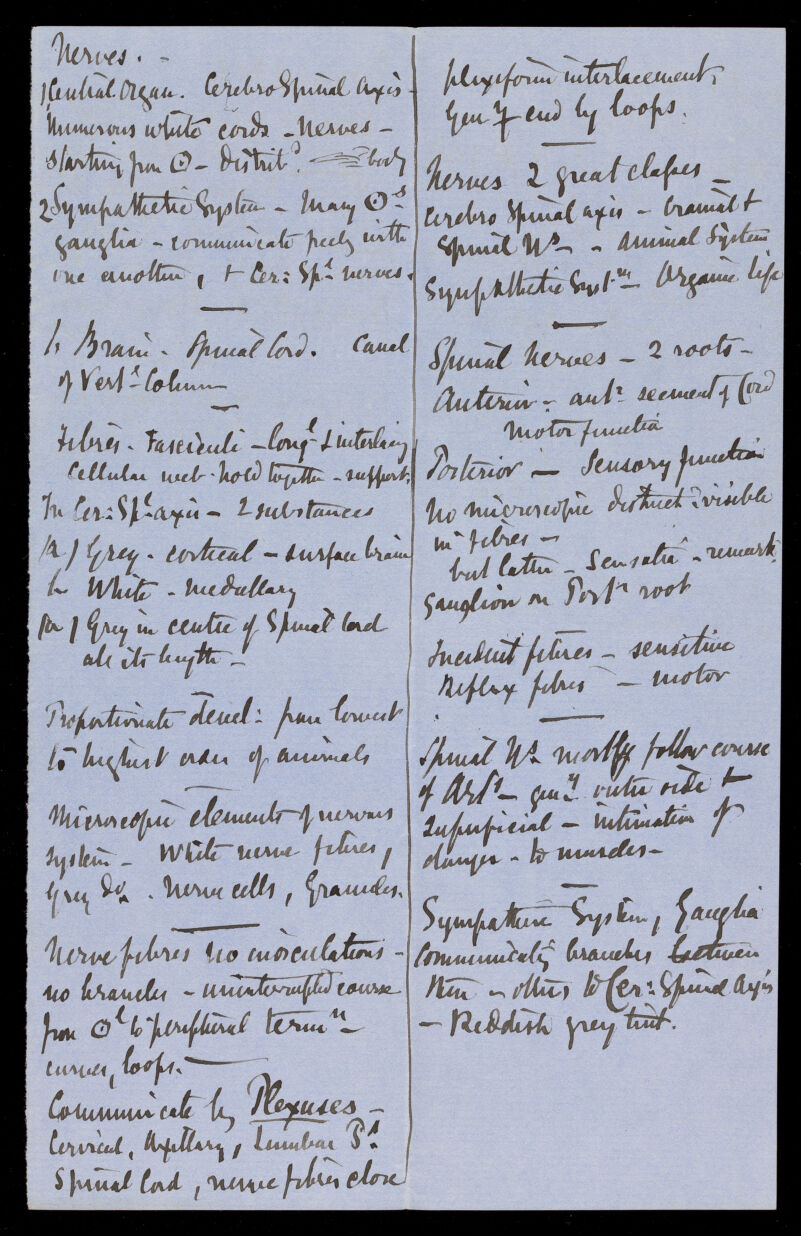 Nerves. -
1 Central Organ. Cerebro Spinal Axis -
Numerous white cords - Nerves -
Starting from ⊙ - Distribd body
2 Sympathetic System - Many ⊙s -
ganglia - communicate freely with
one another, & Cer: Spl nerves.
1. Brain - Spinal Cord. Canal
of Vertl Column
Fibres - Fasciculi - longl & interlacing
Cellular web - hold together - support.
In Cer: Spl axis - 2 substances
Grey - cortical - surface brain
White - medullary
Grey in centre of Spinal Cord
all its length -
Proportionate devel: from lowest
to highest order of animals
Microscopic elements of nervous
system - White nerve fibres,
Grey do. Nerve cells, Granules.
Nerve fibres no inosculations -
no branches - uninterrupted course
from ⊙l to peripheral termn -
curves, loops. -
Communicate by Plexuses -
Cervical, Axillary, Lumbar Ps.
Spinal Cord, nerve fibres close
plexiform interlacement,
Genly end by loops.
Nerves 2 great classes -
Cerebro Spinal axis - cranial &
Spinal Ns - - Animal System
Sympathetic Systm - Organic life
Spinal Nerves - 2 roots -
Anterior - antr segment of Cord
Motor function
Posterior - Sensory function
No microscopic distinctn visible
in fibres -
but latter - Sensatn - remark.
Ganglion on Postr root
Incident fibres - sensitive
Reflex fibres - motor
Spinal Ns mostly follow course
of Arts - genly outer side &
superficial - intimation of
danger - to muscles -
Sympathetic System, Ganglia
Communicatg branches between
them - others to Cer: Spinal Axis
- Reddish grey tint.